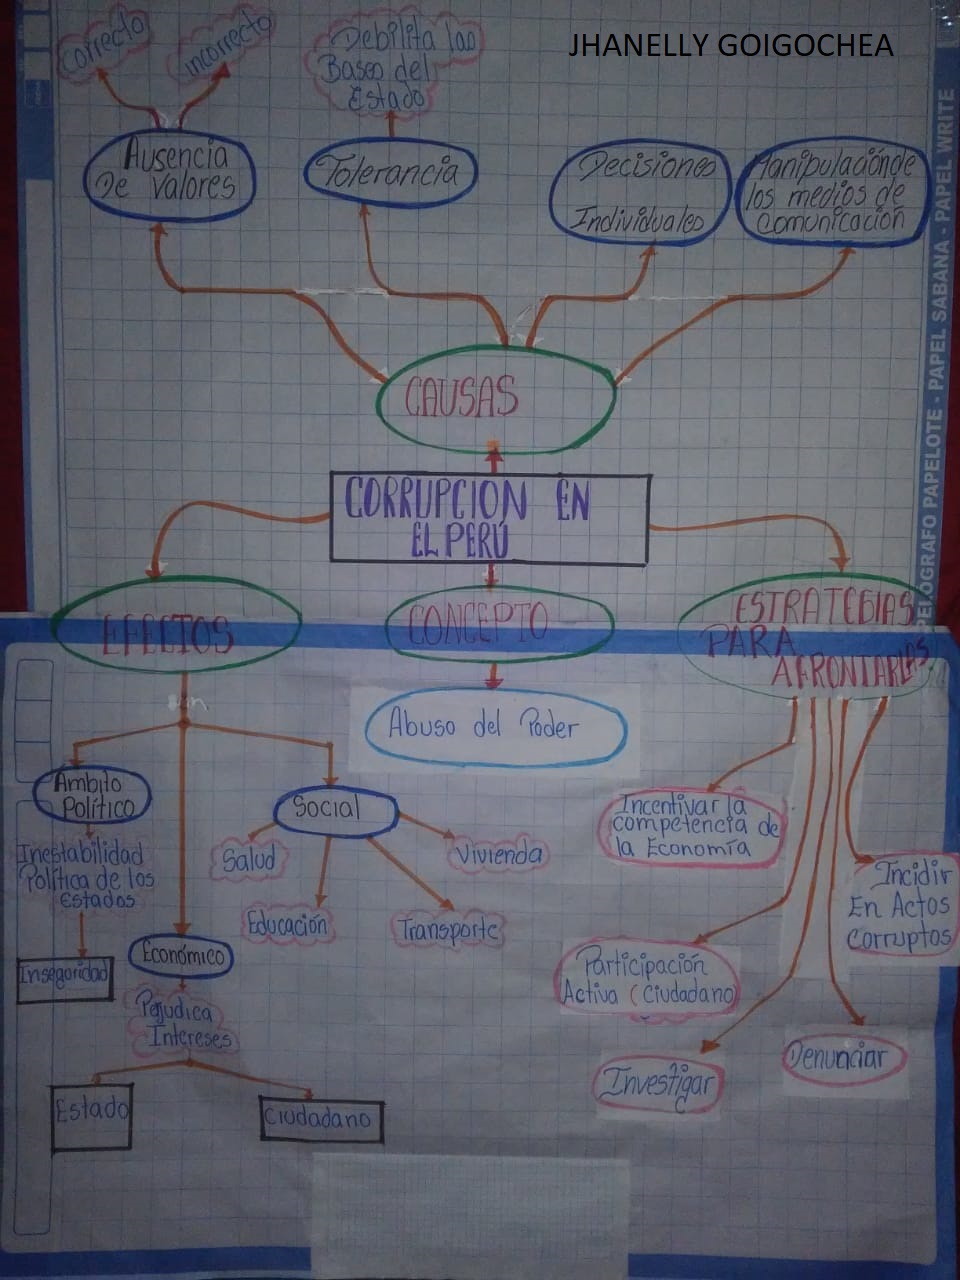 JHANELLY GOIGOCHEA
Correcto
incorrecto
Debilita las
Bases del
Estado
Ausencia
De Valores
Tolerancia
Decisiones
Individuales
Manipulaciónde
los medios de
Comunicación
CAUSAS
CORRUPCION EN
EL PERÚ
EFECTOS
CONCEPTO
ESTRATEGIAS
PARA
AFRONTARLAS
Abuso del Poder
Ambito
Político
Inestabilidad
Política de los
Estados
Inseguridad
Económico
Perjudica
Intereses
Estado
Ciudadano
Social
Salud
Educación
Transporte
Vivienda
Incentivar la
competencia de
la Economía
Participación
Activa (Ciudadano
Investigar
Denunciar
Incidir
En Actos
Corruptos
PELÓGRAFO PAPELOTE - PAPEL SABANA - PAPEL WRITE